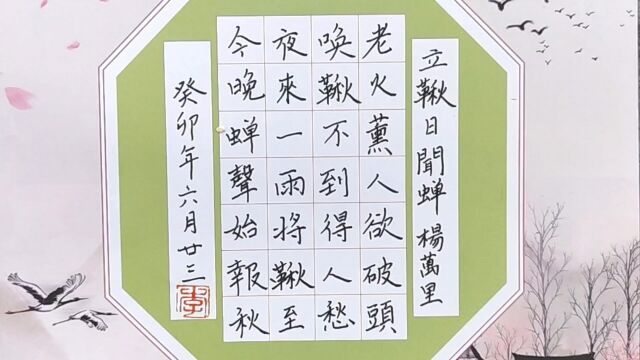 立鞦日聞蝉 楊萬里
老火薰人欲破頭
喚鞦不到得人愁
夜來一雨將鞦至
今晚蝉聲始報秋
癸卯年六月廿三
李